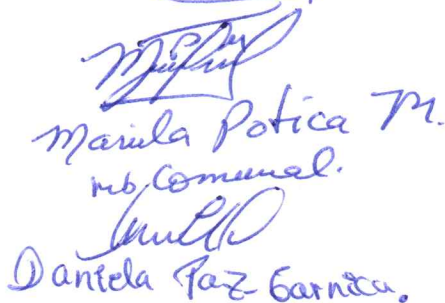 Mariela Potica M.
mb, Comunal.
Daniela Paz Garnica.